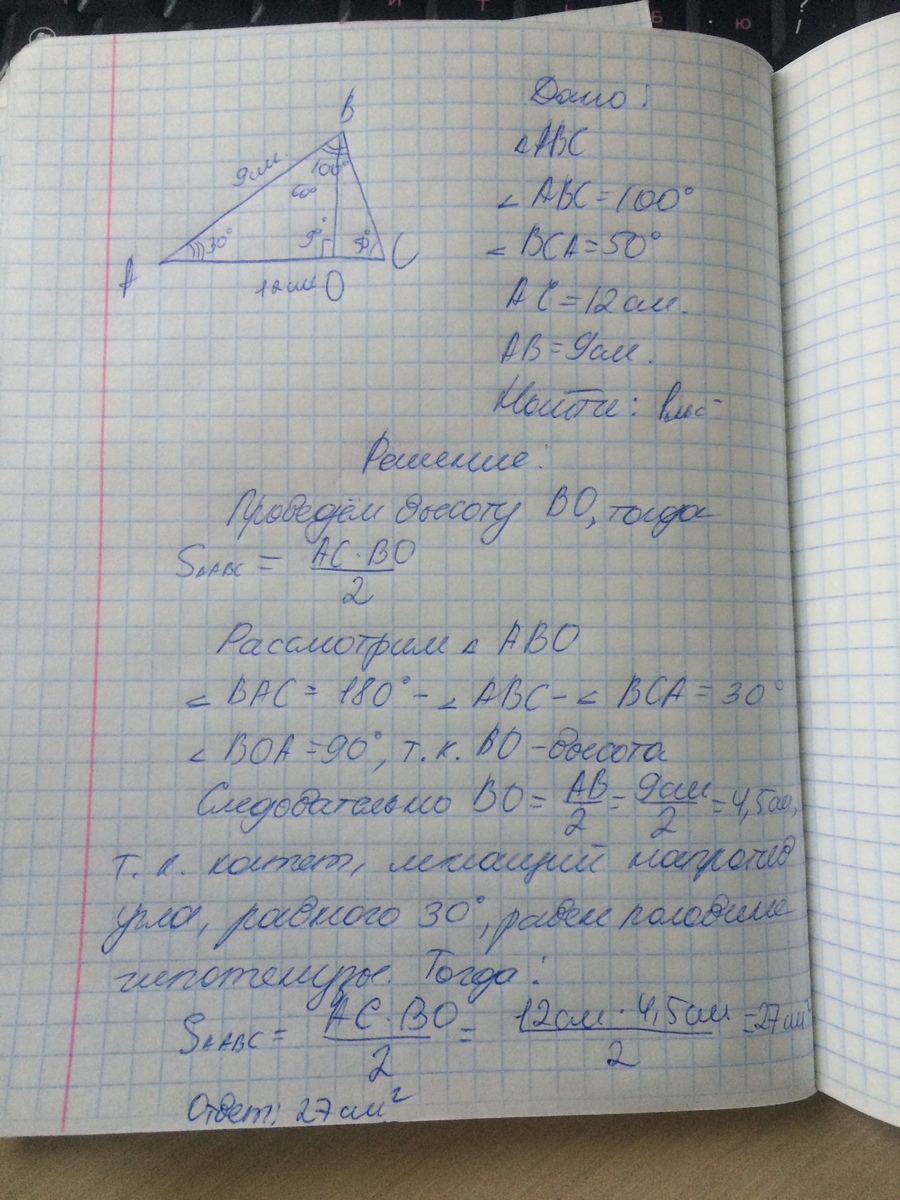 B
9см
100°
60°
30°
9°
50
A
C
12см O
Дано:
△ABC
∠ABC=100°
∠BCA=50°
AC=12см.
AB=9см.
Найти:
Решение:
Проведём высоту BO, тогда
S△ABC = AC·BO / 2
Рассмотрим △ ABO
∠BAC = 180° - ∠ABC - ∠BCA = 30°
∠BOA = 90°, т.к. BO - высота
Следовательно BO = AB / 2 = 9см / 2 = 4,5см,
т.к. катет, лежащий напротив
угла, равного 30°, равен половине
гипотенузы. Тогда:
S△ABC = AC·BO / 2 = 12см · 4,5см / 2 = 27см²
Ответ: 27см²